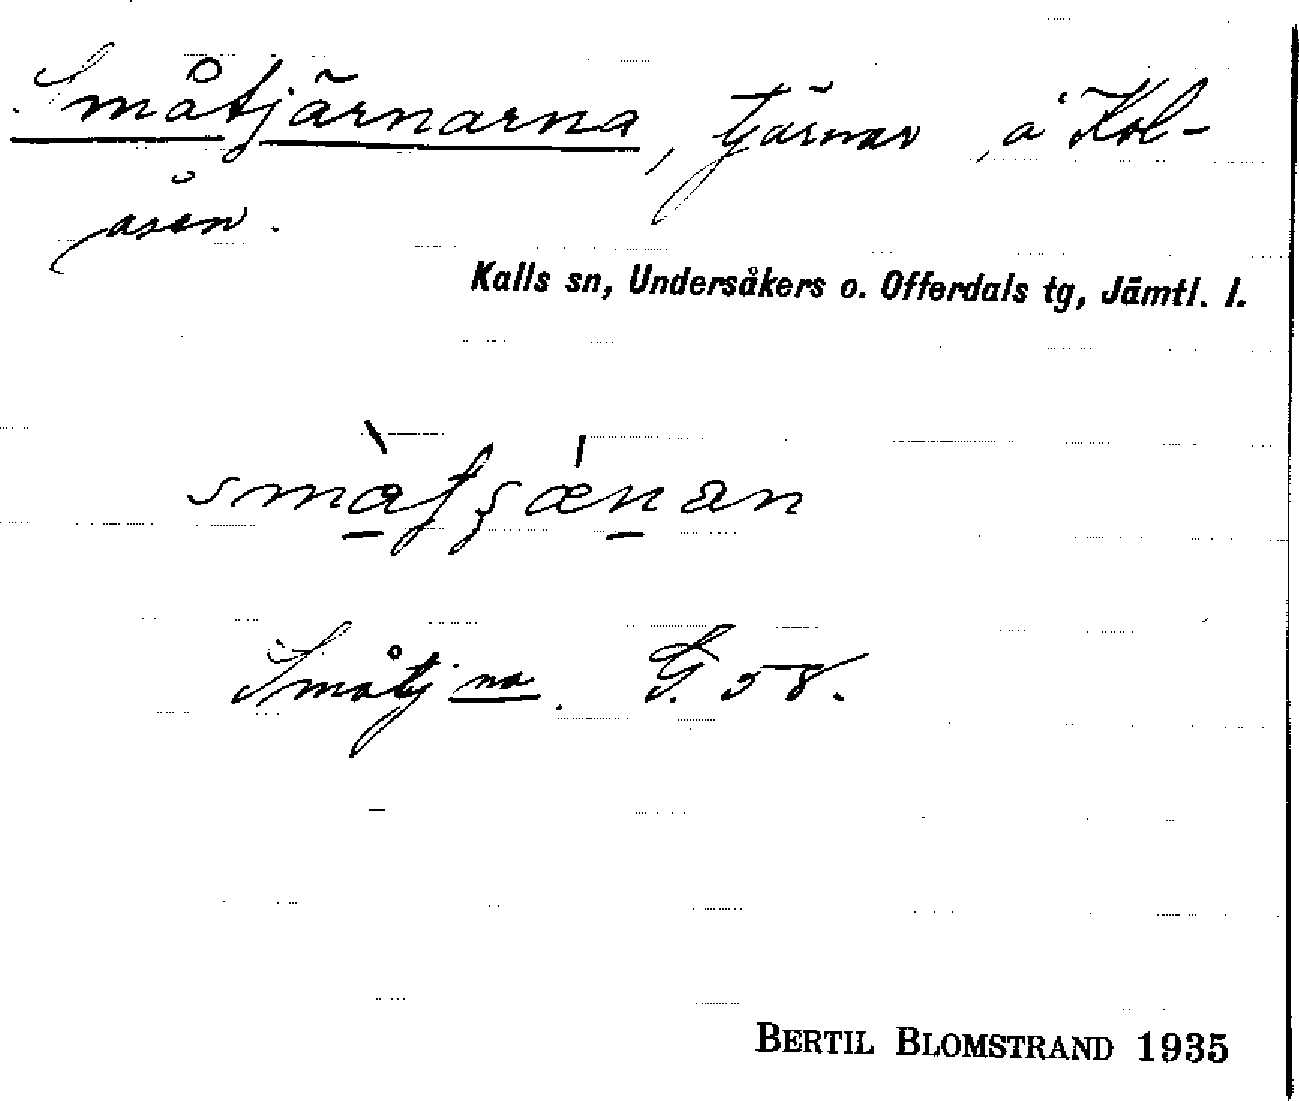 Småtjärnarna, tjärnar å Kol-
åsen.
Kalls sn, Undersåkers o. Offerdals tg, Jämtl. l.
Småtj na. G. 58.
BERTIL BLOMSTRAND 1935